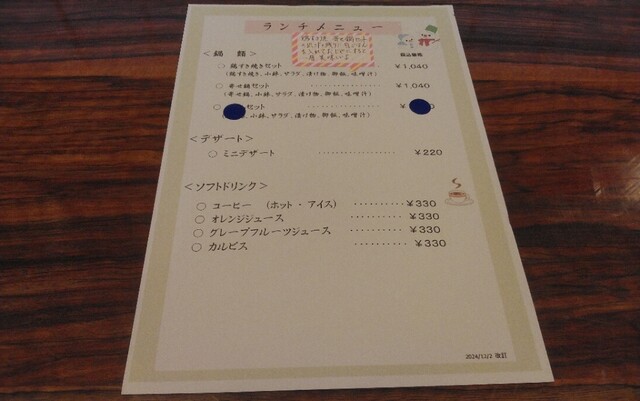 ランチメニュー
税込価格
＜鍋 類＞
○ 鶏すき焼きセット ¥1,040
(鶏すき焼き、小鉢、サラダ、漬け物、御飯、味噌汁)
○ 寄せ鍋セット ¥1,040
(寄せ鍋、小鉢、サラダ、漬け物、御飯、味噌汁)
セット ¥
、小鉢、サラダ、漬け物、御飯、味噌汁)
＜デザート＞
○ ミニデザート ¥220
＜ソフトドリンク＞
○ コーヒー (ホット・アイス) ¥330
○ オレンジジュース ¥330
○ グレープフルーツジュース ¥330
○ カルピス ¥330
2024/12/2 改訂